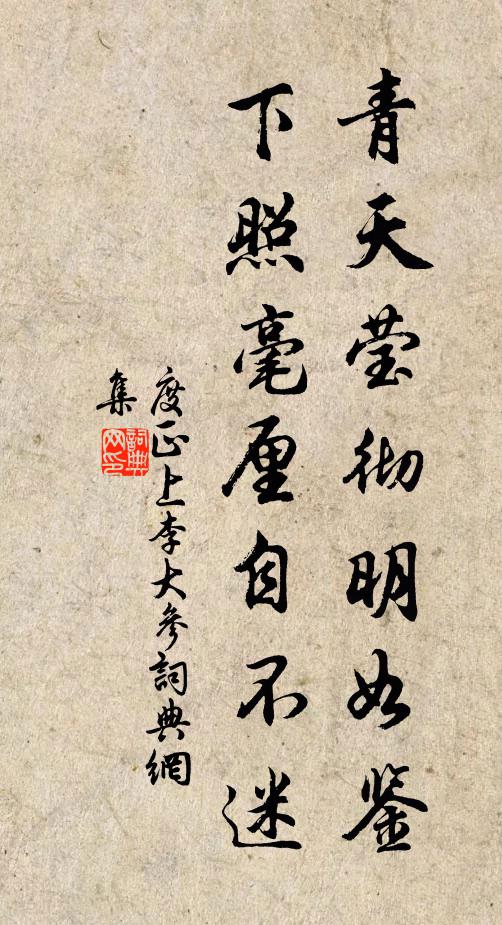 青天莹彻明如鉴
下照毫厘自不迷
度正上李大參詞典網
集
詞典网印